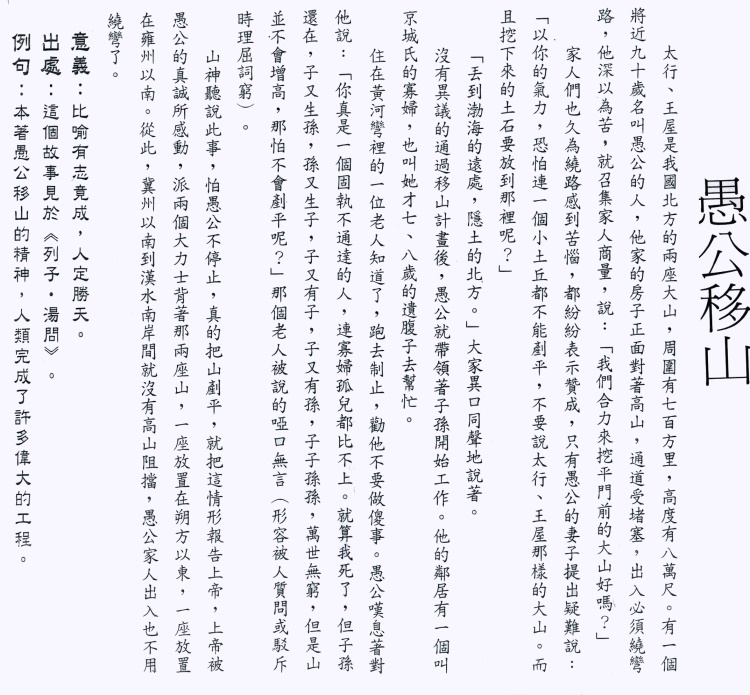 愚公移山
太行、王屋是我國北方的兩座大山，周圍有七百方里，高度有八萬尺。有一個
將近九十歲名叫愚公的人，他家的房子正面對著高山，通道受堵塞，出入必須繞彎
路，他深以為苦，就召集家人商量，說：「我們合力來挖平門前的大山好嗎？」
家人們也久為繞路感到苦惱，都紛紛表示贊成，只有愚公的妻子提出疑難說：
「以你的氣力，恐怕連一個小土丘都不能剷平，不要說太行、王屋那樣的大山。而
且挖下來的土石要放到那裡呢？」
「丟到渤海的遠處，隱土的北方。」大家異口同聲地說著。
沒有異議的通過移山計畫後，愚公就帶領著子孫開始工作。他的鄰居有一個叫
京城氏的寡婦，也叫她才七、八歲的遺腹子去幫忙。
住在黃河彎裡的一位老人知道了，跑去制止，勸他不要做傻事。愚公嘆息著對
他說：「你真是一個固執不通達的人，連寡婦孤兒都比不上。就算我死了，但子孫
還在，子又生孫，孫又生子，子又有子，子又有孫，子子孫孫，萬世無窮，但是山
並不會增高，那怕不會剷平呢？」那個老人被說的啞口無言（形容被人質問或駁斥
時理屈詞窮）。
山神聽說此事，怕愚公不停止，真的把山剷平，就把這情形報告上帝，上帝被
愚公的真誠所感動，派兩個大力士背著那兩座山，一座放置在朔方以東，一座放置
在雍州以南。從此，冀州以南到漢水南岸間就沒有高山阻擋，愚公家人出入也不用
繞彎了。
意義：比喻有志竟成，人定勝天。
出處：這個故事見於《列子·湯問》。
例句：本著愚公移山的精神，人類完成了許多偉大的工程。